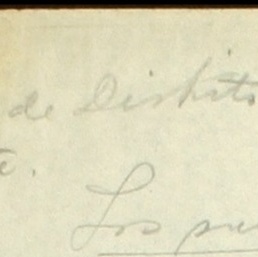 de Distrito
e.
Los pu